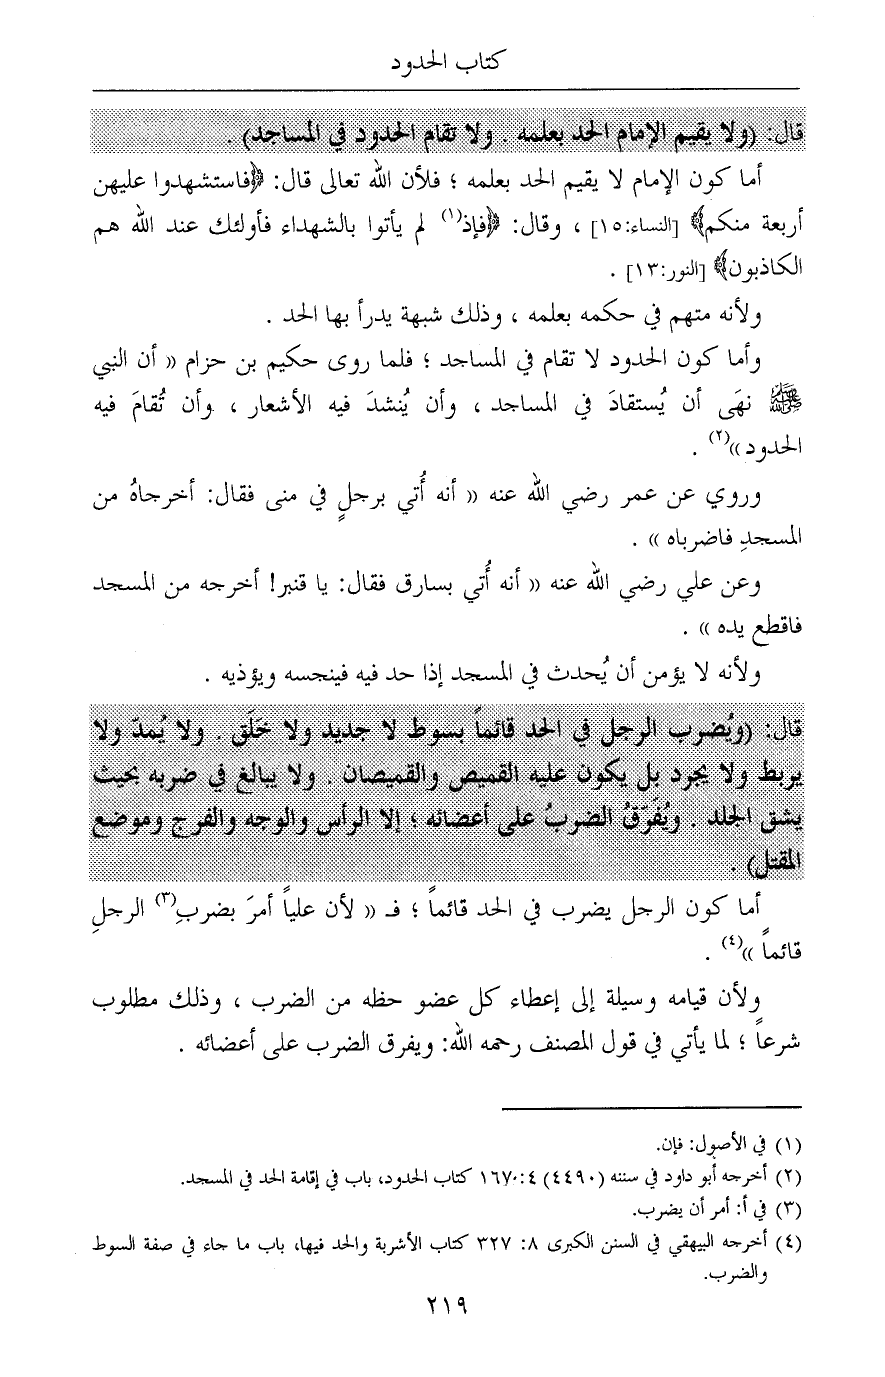 كتاب الحدود
قال: (ولا يقيم الإمام الحد بعلمه . ولا تقام الحدود في المساجد) .
أما كون الإمام لا يقيم الحد بعلمه ؛ فلأن الله تعالى قال: ﴿فاستشهدوا عليهن
أربعة منكم﴾ [النساء:١٥] ، وقال: ﴿فإذ(١) لم يأتوا بالشهداء فأولئك عند الله هم
الكاذبون﴾ [النور:١٣] .
ولأنه متهم في حكمه بعلمه ، وذلك شبهة يدرأ بها الحد .
وأما كون الحدود لا تقام في المساجد ؛ فلما روى حكيم بن حزام « أن النبي
ﷺ نهَى أن يُستقادَ في المساجد ، وأن يُنشدَ فيه الأشعار ، وأن تُقامَ فيه
الحدود »(٢) .
وروي عن عمر رضي الله عنه « أنه أُتي برجلٍ في منى فقال: أخرجاهُ من
المسجدِ فاضرباه » .
وعن علي رضي الله عنه « أنه أُتي بسارق فقال: يا قنبر! أخرجه من المسجد
فاقطع يده » .
ولأنه لا يؤمن أن يُحدث في المسجد إذا حد فيه فينجسه ويؤذيه .
قال: (ويُضرب الرجل في الحد قائماً بسوط لا جديد ولا خَلَق . ولا يُمدّ ولا
يربط ولا يجرد بل يكون عليه القميص والقميصان . ولا يبالغ في ضربه بحيث
يشق الجلد . ويُفَرَّقُ الضربُ على أعضائه ؛ إلا الرأس والوجه والفرج وموضع
المقتل) .
أما كون الرجل يضرب في الحد قائماً ؛ فـ « لأن علياً أمرَ بضربِ(٣) الرجلِ
قائماً »(٤) .
ولأن قيامه وسيلة إلى إعطاء كل عضو حظه من الضرب ، وذلك مطلوب
شرعاً ؛ لما يأتي في قول المصنف رحمه الله: ويفرق الضرب على أعضائه .
(١) في الأصول: فإن.
(٢) أخرجه أبو داود في سننه (٤٤٩٠) ١٦٧:٤ كتاب الحدود، باب في إقامة الحد في المسجد.
(٣) في أ: أمر أن يضرب.
(٤) أخرجه البيهقي في السنن الكبرى ٨: ٣٢٧ كتاب الأشربة والحد فيها، باب ما جاء في صفة السوط
والضرب.
٢١٩